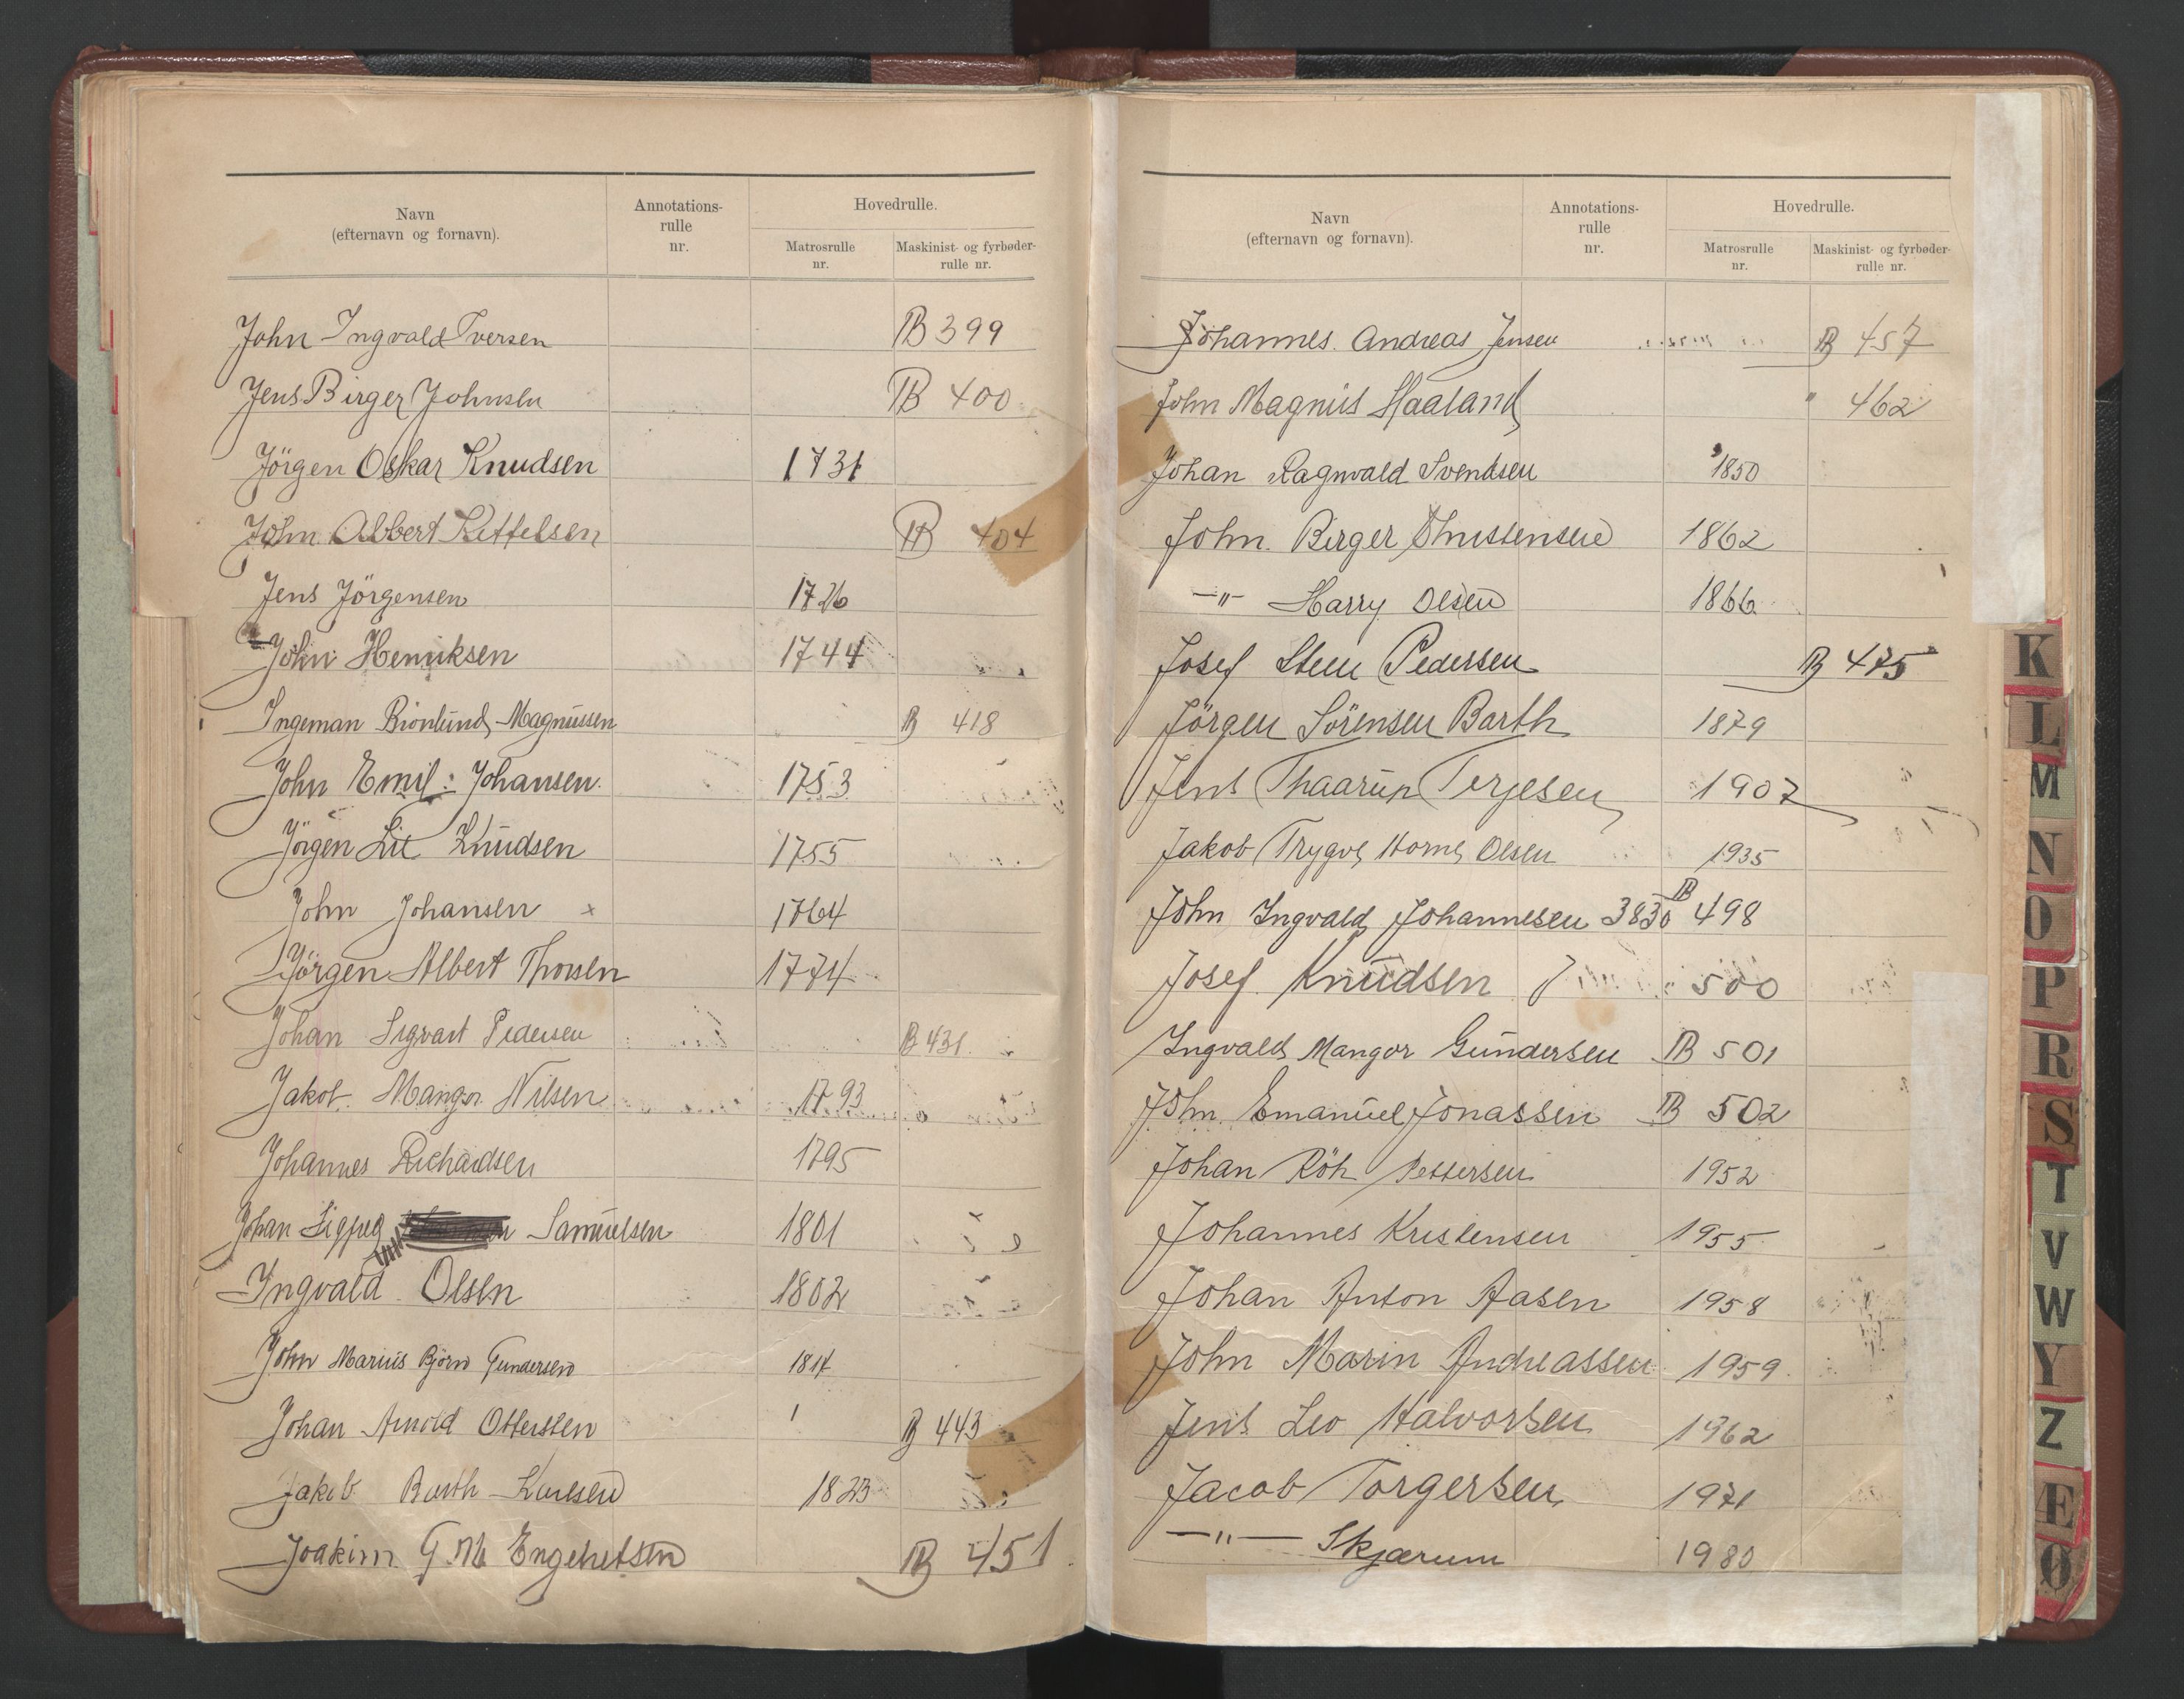 Navn
(efternavn og fornavn).
Annotations-
rulle
nr.
Hovedrulle.
Matrosrulle
nr.
Maskinist- og fyrbøder-
rulle nr.
John Ingvald Iversen B 399
Jens Birger Johnsen B 400
Jörgen Oskar Knudsen 1731
John Albert Kittelsen B 404
Jens Jörgensen 1726
John Henriksen 1744
Ingeman Bionlund Magnussen B 418
John Emil: Johansen 1753
Jörgen Lie Knudsen 1755
John Johansen x 1764
Jörgen Albert Thorsen 1774
Johan Sigvart Pedersen B 431
Jakob Mangor Nilsen 1793
Johannes Richardsen 1795
Johan Sigfred Samuelsen 1801
Ingvald Olsen 1802
John Marius Björn Gundersen 1814
Johan Arnold Ottersten B 443
Jakob Barth Karlsen 1823
Joakim G. M. Engebretsen B 451
Navn
(efternavn og fornavn).
Annotations-
rulle
nr.
Hovedrulle.
Matrosrulle
nr.
Maskinist- og fyrbøder-
rulle nr.
Johannes Andreas Jensen B 457
John Magnus Haaland " 462
Johan Ragnvald Svendsen 1850
John Birger Christensen 1862
—"— Harry Olsen 1866
Josef Steen Pedersen B 475
Jörgen Sörensen Barth 1879
Jens Thaarup Terjesen 1907
Jakob Trygve Horne Olsen 1935
John Ingvald Johannesen 3830 B 498
Josef Knudsen 500
Ingvald Mangor Gundersen B 501
John Emanuel Jonassen B 502
Johan Röh Pettersen 1952
Johannes Kristensen 1955
Johan Anton Aasen 1958
John Marin Andreassen 1959
Jens Leo Halvorsen 1962
Jacob Torgersen 1971
—"— Skjærum 1980
K
L
M
N
O
P
R
S
T
V
W
Y
Z
Æ
Ø